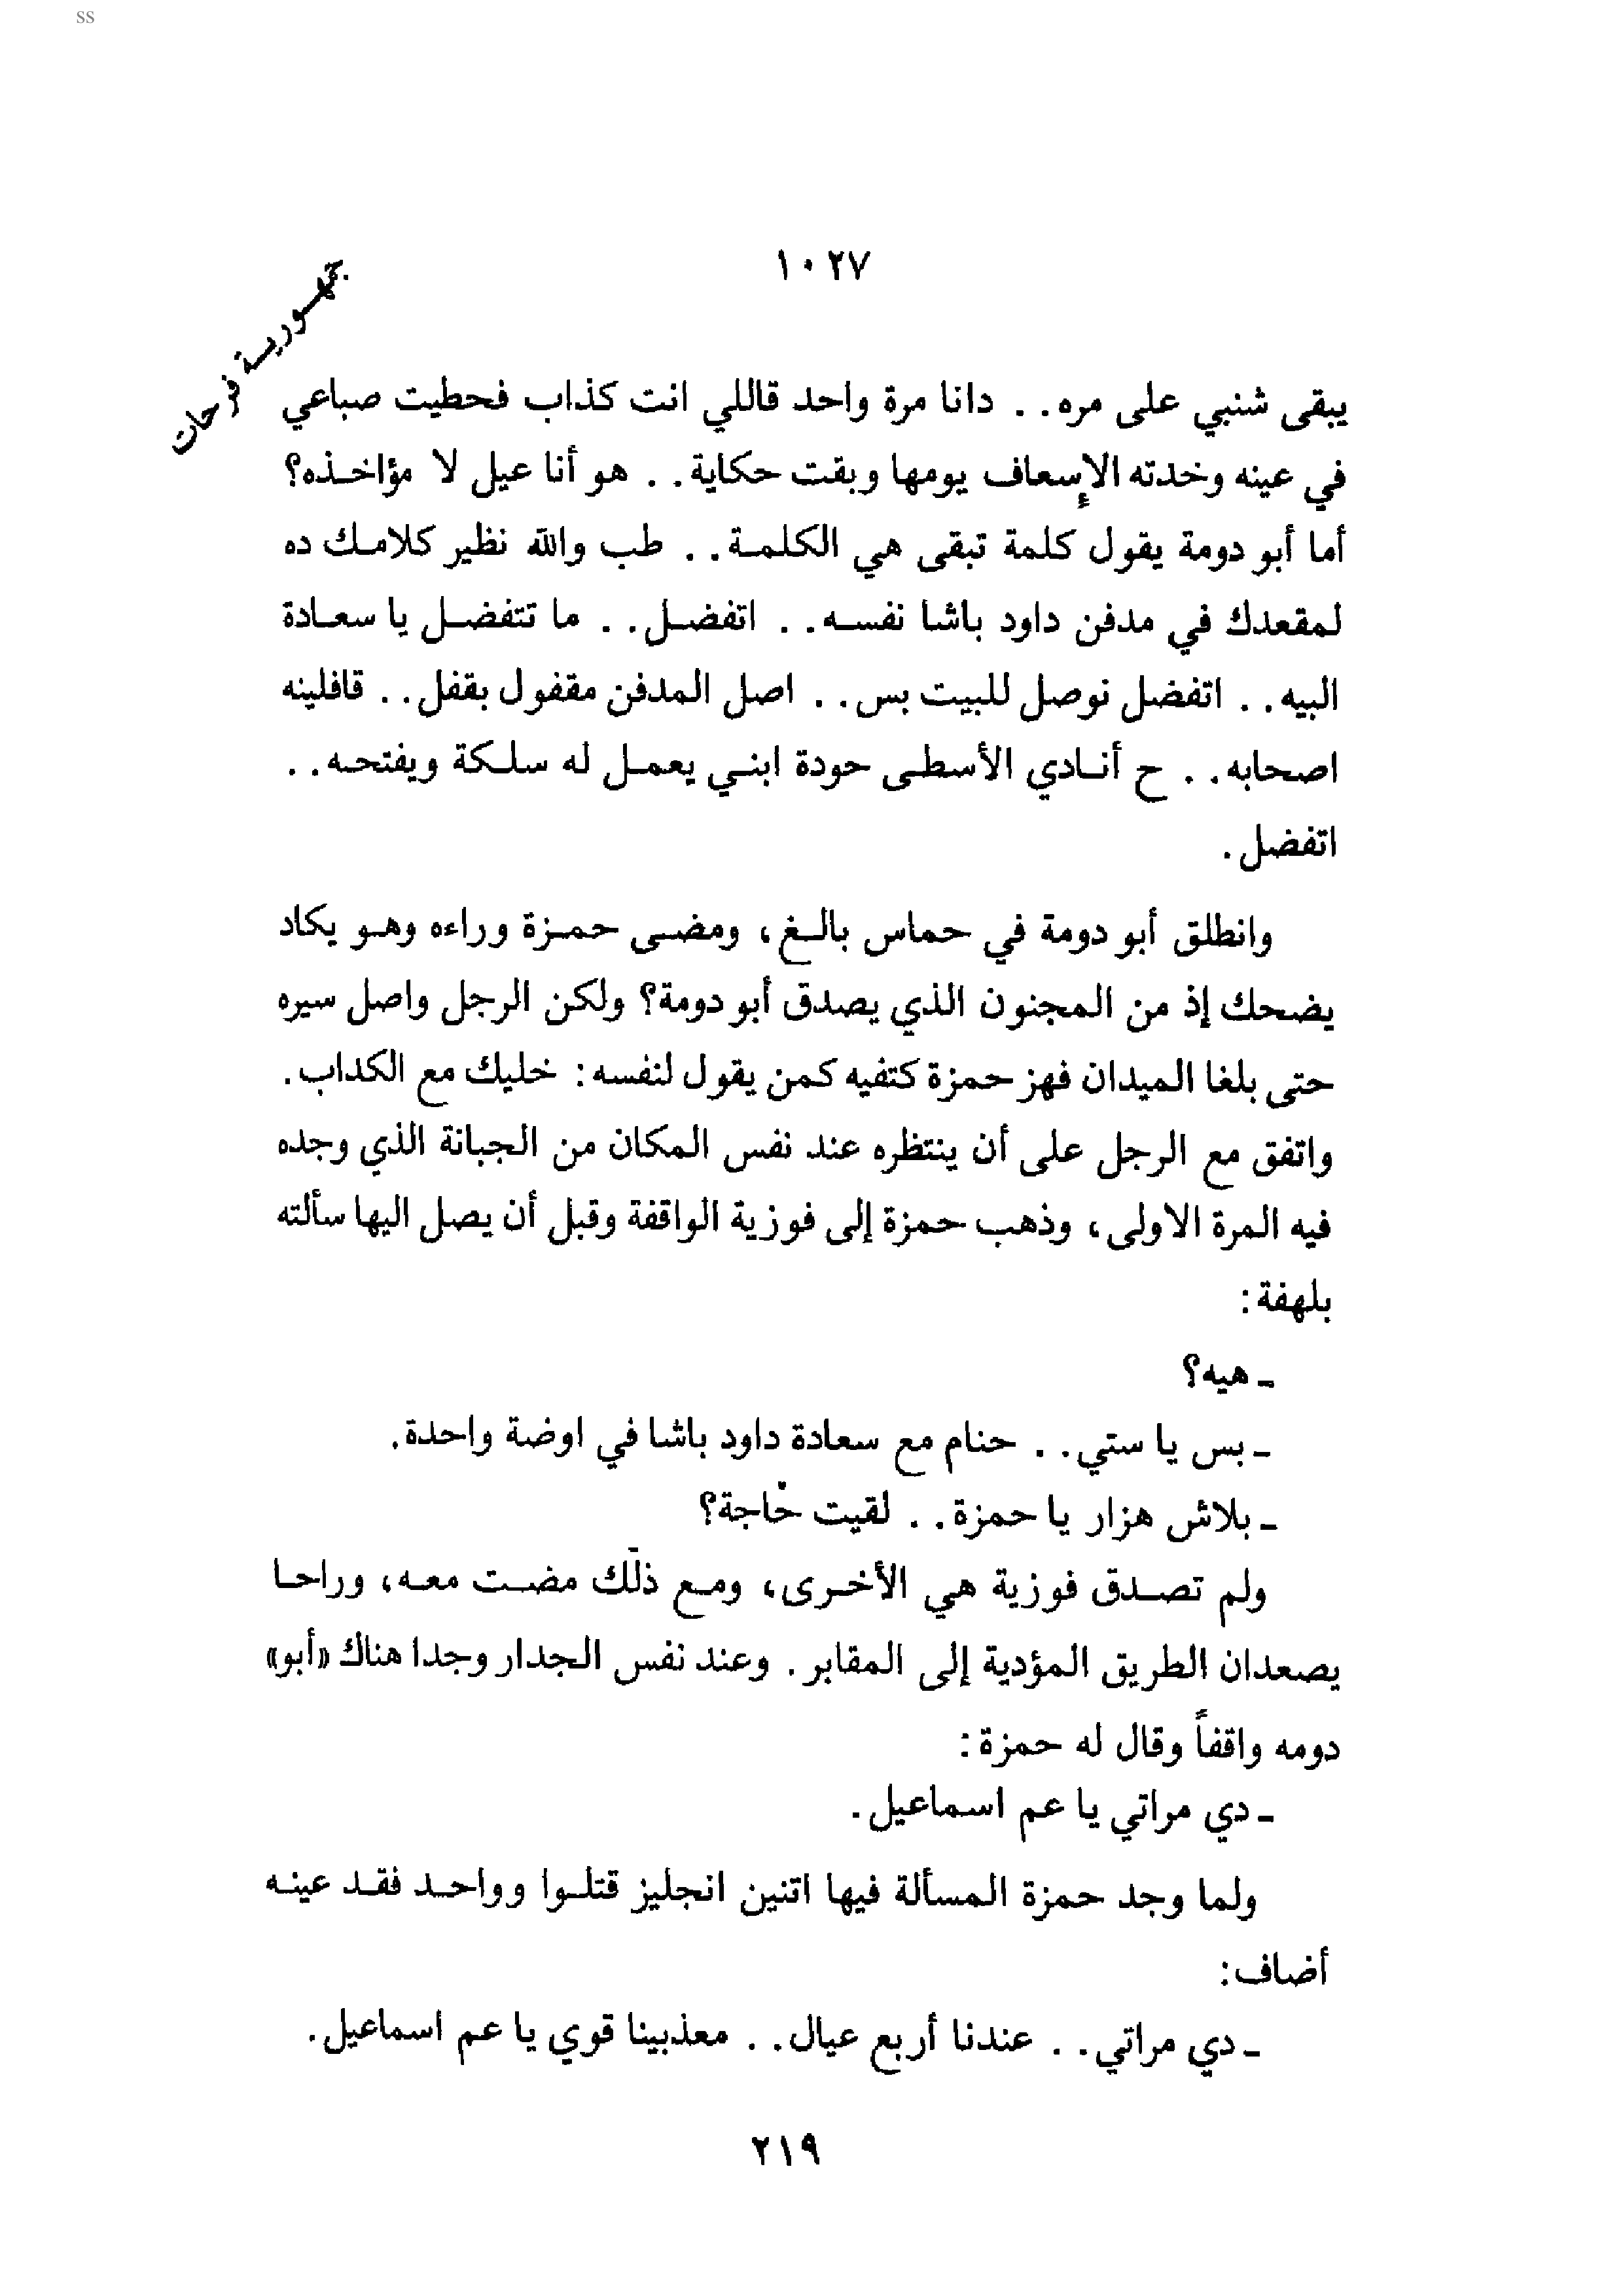 SS
١٠٢٧
جمهورية فرحات
يبقى شنبي على مره . . دانا مرة واحد قاللي انت كذاب فحطيت صباعي
في عينه وخدته الإسعاف يومها وبقت حكاية . . هو أنا عيل لا مؤاخذه؟
أما أبو دومة يقول كلمة تبقى هي الكلمة . . طب والله نظير كلامك ده
لمقعدك في مدفن داود باشا نفسه . . اتفضل . . ما تتفضل يا سعادة
البيه . . اتفضل نوصل للبيت بس . . اصل المدفن مقفول بقفل . . قافلينه
اصحابه . . ح أنادي الأسطى حودة ابني يعمل له سلكة ويفتحه . .
اتفضل .
وانطلق أبو دومة في حماس بالغ، ومضى حمزة وراءه وهو يكاد
يضحك إذ من المجنون الذي يصدق أبو دومة؟ ولكن الرجل واصل سيره
حتى بلغا الميدان فهز حمزة كتفيه كمن يقول لنفسه: خليك مع الكداب .
واتفق مع الرجل على أن ينتظره عند نفس المكان من الجبانة الذي وجده
فيه المرة الاولى، وذهب حمزة إلى فوزية الواقفة وقبل أن يصل اليها سألته
بلهفة:
ـ هيه؟
ـ بس يا ستي . . حنام مع سعادة داود باشا في اوضة واحدة.
ـ بلاش هزار يا حمزة . . لقيت حاجة؟
ولم تصدق فوزية هي الأخرى، ومع ذلك مضت معه، وراحا
يصعدان الطريق المؤدية إلى المقابر . وعند نفس الجدار وجدا هناك «أبو»
دومه واقفاً وقال له حمزة:
ـ دي مراتي يا عم اسماعيل .
ولما وجد حمزة المسألة فيها اتنين انجليز قتلوا وواحد فقد عينه
أضاف:
ـ دي مراتي . . عندنا أربع عيال . . معذبينا قوي يا عم اسماعيل .
٢١٩